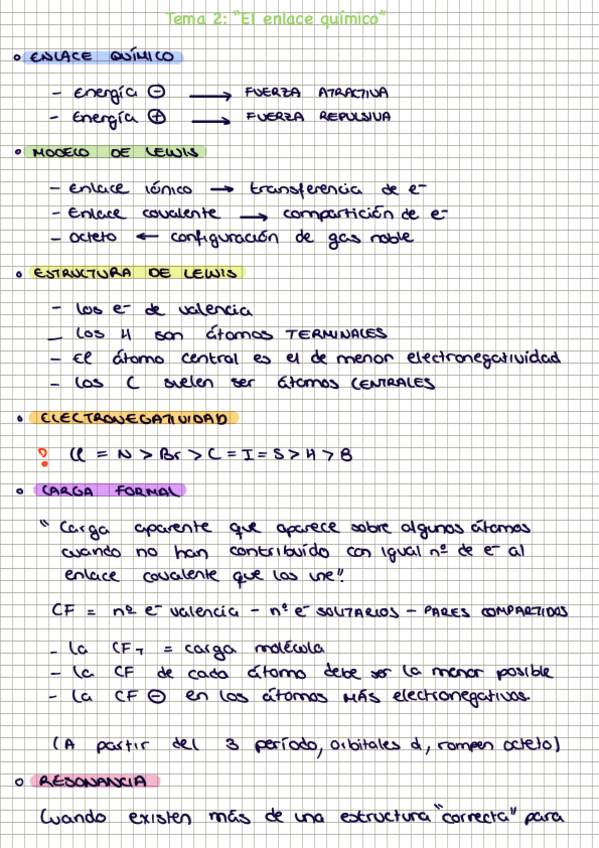 Tema 2: "El enlace químico"
ENLACE QUÍMICO
- Energía ⊖ → FUERZA ATRACTIVA
- Energía ⊕ → FUERZA REPULSIVA
MODELO DE LEWIS
- Enlace iónico → transferencia de e⁻
- Enlace covalente → compartición de e⁻
- Octeto ← configuración de gas noble
ESTRUCTURA DE LEWIS
- Los e⁻ de valencia
- Los H son átomos TERMINALES
- El átomo central es el de menor electronegatividad
- Los C suelen ser átomos CENTRALES
ELECTRONEGATIVIDAD
Cl = N > Br > C = I = S > H > B
CARGA FORMAL
"Carga aparente que aparece sobre algunos átomos
cuando no han contribuído con igual nº de e⁻ al
enlace covalente que los une".
CF = nº e⁻ valencia - nº e⁻ SOLITARIOS - PARES COMPARTIDOS
- La CF_T = carga molécula
- La CF de cada átomo debe ser la menor posible
- La CF ⊖ en los átomos MÁS electronegativos.
(A partir del 3 período, orbitales d, rompen octeto)
RESONANCIA
Cuando existen más de una estructura "correcta" para